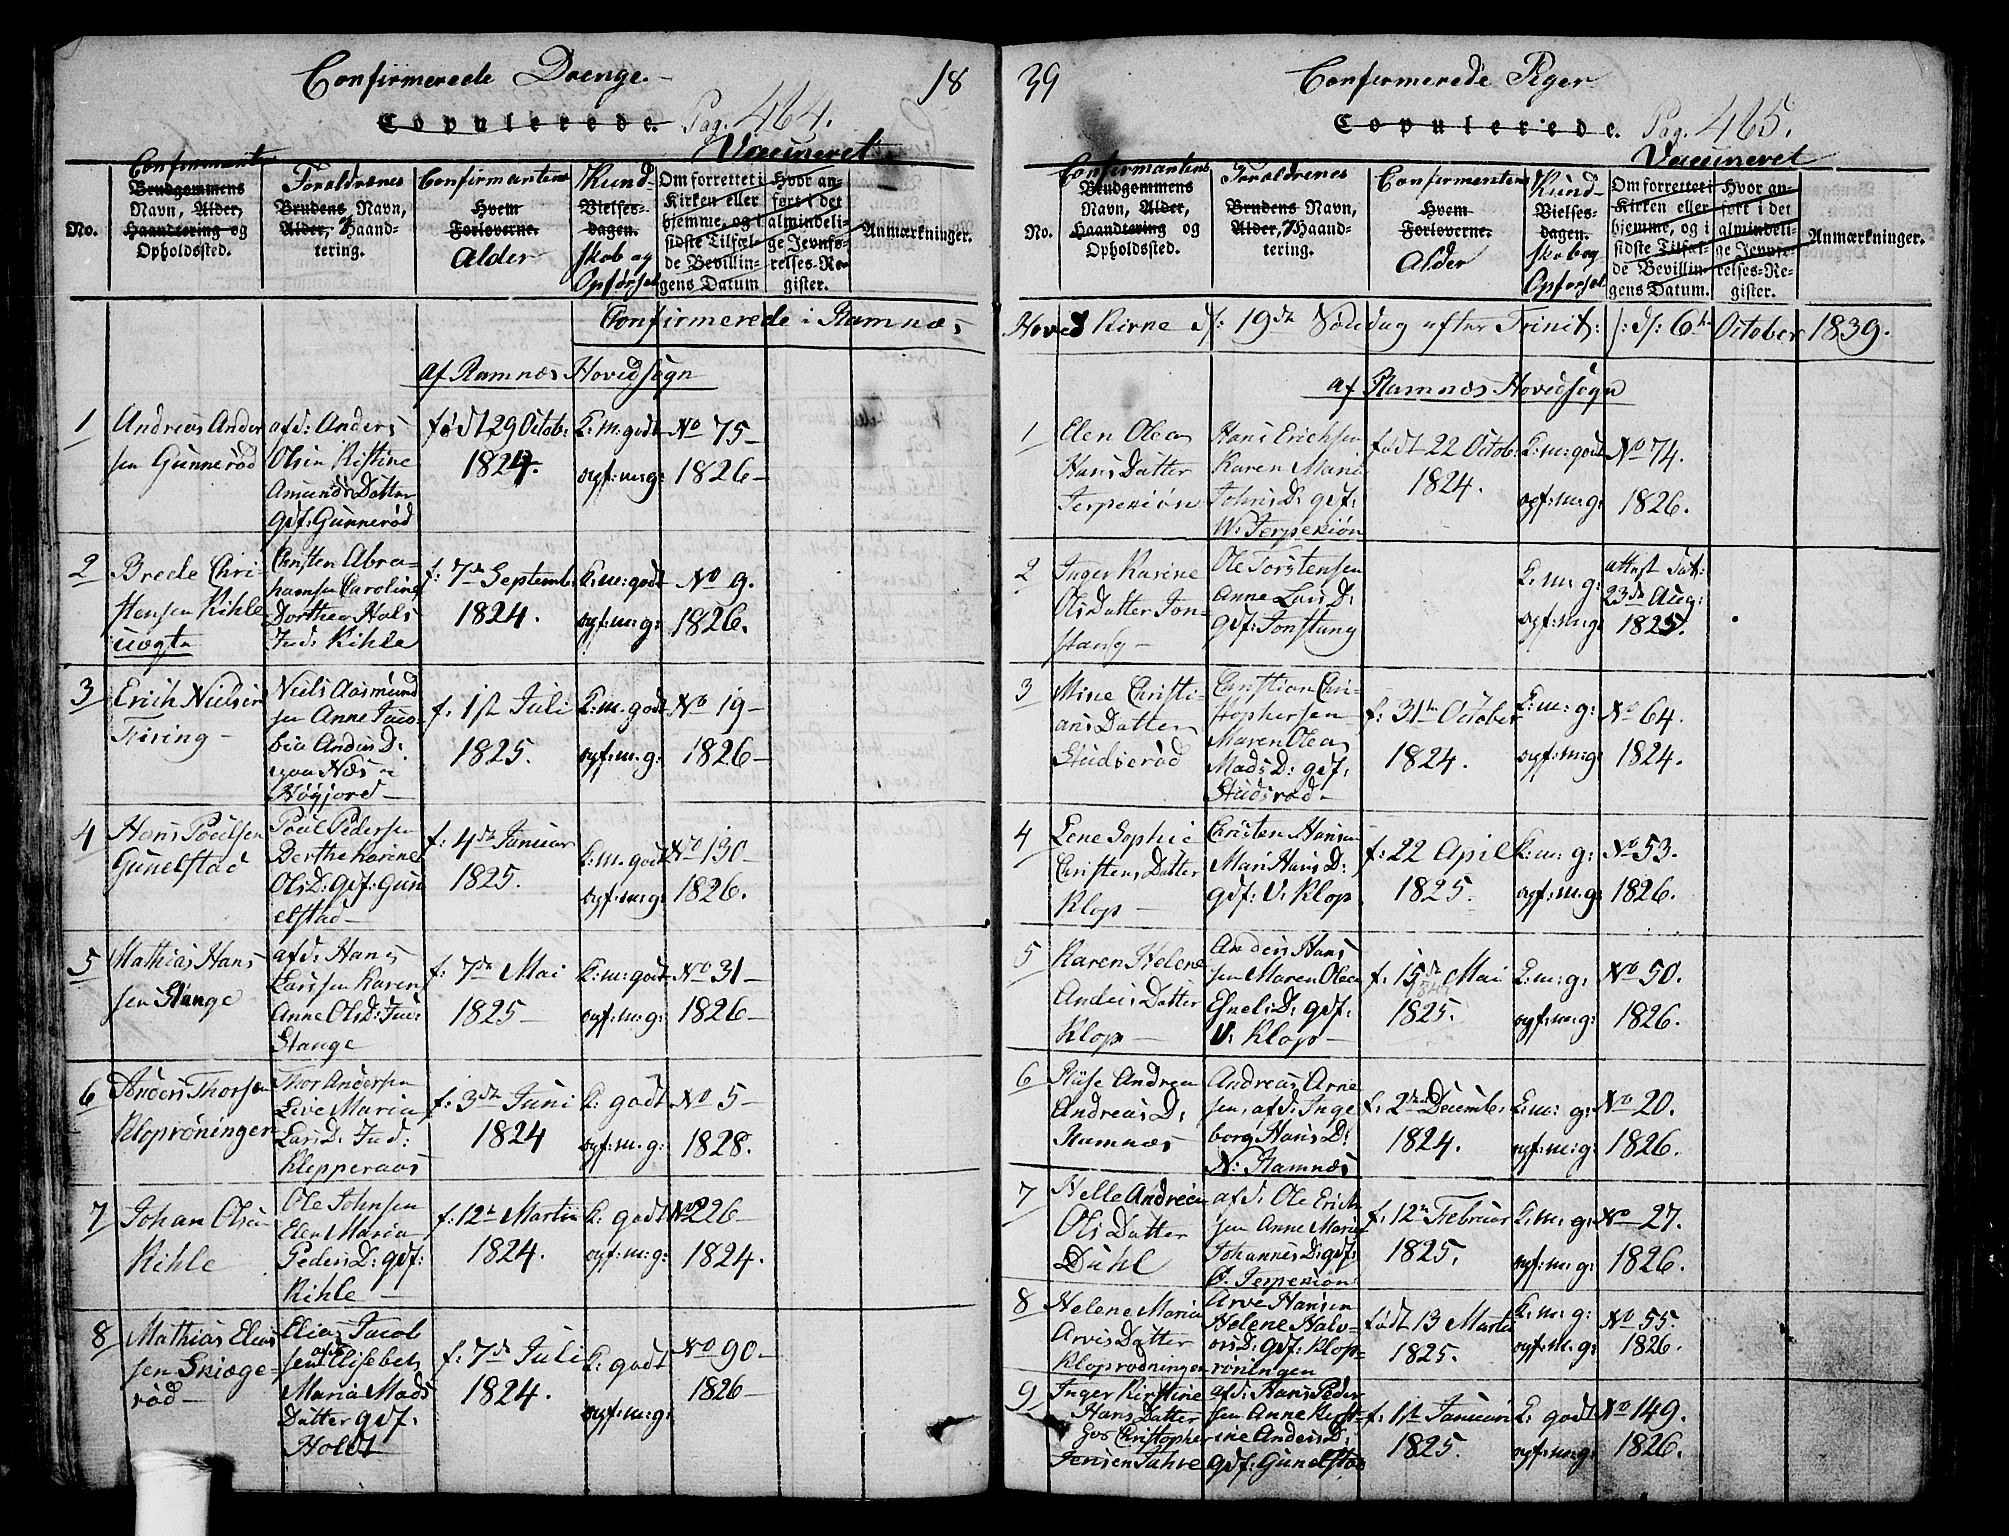 Confirmerede Drenge.
18
Copulerede. Pag. 464.
Vaccineret
No.
Confirmanten
Brudgommens
Navn, Alder,
Haandtering og
Opholdssted.
Foreldrenes
Brudens Navn,
Alder, Haand-
tering.
Confirmantens
Hvem
Forloverne.
Alder
Kund-
Vielses-
dagen.
skab og
Opførsel
Om forrettet i
Kirken eller
hjemme, og i
sidste Tilfæl-
de Bevillin-
gens Datum
Hvor an-
ført i det
almindeli-
ge Jevnfø-
relses-Re-
gister.
Anmærkninger.
Confirmerede i Ramnæs
af Ramnæs Hovedsogn
1
Andreas Ander
sen Gunnerød
afd: Anders
Olsen Kistine
Amunds Datter
gdf: Gunnerød
født 29 Octob:
1824.
K: m: godt
opf: m: g:
No 75
1826
2
Brede Chri-
stensen Kihle
uægte
Christen Abra-
hamsen Caroline
Dorthea Hals
Ind: Kihle
f: 7de Septemb
1824.
K: m: godt
opf: m: g:
No 9.
1826.
3
Erich Nielsen
Firing
Niels Aasmund
sen Anne Jaco-
bia Anders D:
paa Næs i
Høyjord
f: 1ste Juli
1825.
K: m. godt
opf: m. g:
No 19
1826
4
Hans Poulsen
Gunelstad
Poul Pedersen
Berthe Karine
Ols D: gdf: Gun
elstad
f: 4de Januar
1825.
K: m. godt
opf: m: g:
No 130
1826.
5
Mathias Hans
sen Stange
afd: Hans
Larssen Karen
Anne Ols D: Ind:
Stange
f: 7de Mai
1825
K: m: godt
opf: m: g:
No 31
1826
6
Anders Thorsen
Kloprøningen
Thor Andersen
Live Maria
Lars D: Ind:
Klepperaas
f: 3de Juni
1824
K: godt
opf: m. g:
No 5
1828.
7
Johan Olsen
Kihle
Ole Johnsen
Elen Maria
Peders D: gdf:
Kihle
f: 12te Martii
1824.
K: godt
opf: m: g:
No 226
1824.
8
Mathias Elias
sen Skiæge-
rød
Elias Jacob
sen afd: Elisebet
Maria Mads
Datter gdf:
Holdt
f: 7de Juli
1824.
K: godt
opf: m: g:
No 90
1826
39
Confirmerede Piger
Copulerede. Pag. 465.
Vaccineret
No.
Confirmantens
Brudgommens
Navn, Alder,
Haandtering og
Opholdssted.
Foreldrenes
Brudens Navn,
Alder, Haand-
tering.
Confirmantens
Hvem
Forloverne.
Alder
Kund-
Vielses-
dagen.
skab og
Opførsel
Om forrettet i
Kirken eller
hjemme, og i
sidste Tilfæl-
de Bevillin-
gens Datum.
Hvor an-
ført i det
almindeli-
ge Jevnfø-
relses-Re-
gister.
Anmærkninger.
Hoved Kirke d: 19de Søndag efter Trinit: /: d: 6te October 1839.
af Ramnæs Hovedsogn
1
Elen Olea
Hans Datter
Jerpekiøn
Hans Erichsen
Karen Marie
Johns D: gdf:
W: Jerpekiøn
født 22 Octob:
1824.
K: m: godt
opf: m: g:
No 74.
1826.
2
Inger Karine
Ols Datter Jon-
stang
Ole Torstensen
Anne Lars D:
gdf: Jonstang
K: m: g:
opf: m: g:
attest dat:
23de Aug:
1825.
3
Mine Christi-
ans Datter
Studserød
Christian Chri-
stophersen
Maren Olea
Mads D: gdf:
Studsrød
f: 31te October
1824.
K: m: g:
opf: m: g:
No 64.
1824.
4
Lene Sophie
Christens Datter
Klop
Christen Hansen
Mari Hans D:
gdf: V: Klop
f: 22 April
1825.
K: m: g:
opf: m: g:
No 53.
1826.
5
Karen Helene
Anders Datter
Klop
Anders Hans
sen Maren Olea
Engels D: gdf:
V: Klop
f: 15de Mai
1825.
K: m: g:
opf: m: g:
No 50.
1826.
6
Andrea
Andreas D:
Ramnæs
Andreas Arne
sen, afd: Inge
borg Hans D:
N: Ramnæs
f: 2den December
1824.
K: m: g:
opf: m: g:
No 20.
1826.
7
Helle Andrea
Ols Datter
Duhl
afd: Ole Erich
sen Anne Maria
Johannes D: gdf:
Ø. Jerpekiøn
f: 12te Februar
1825.
K: m: g:
opf: m: g:
No 27.
1826.
8
Helene Maria
Arves Datter
Klopsrødningen
Arve Hansen
Helene Halvo-
ors D: gdf: Klop-
røningen
født 13 Martii
1825.
K: m: g:
opf: m: g:
No 55.
1826.
9
Inger Kirstine
Hans Datter
hos Christopher
Jensen Sahre
afd: Hans Peder
sen Anne Kirst-
ine Anders D:
gdf: Gunelstad
f: 1ste Januari
1825.
K: godt
opf: m: g:
No 149.
1826.